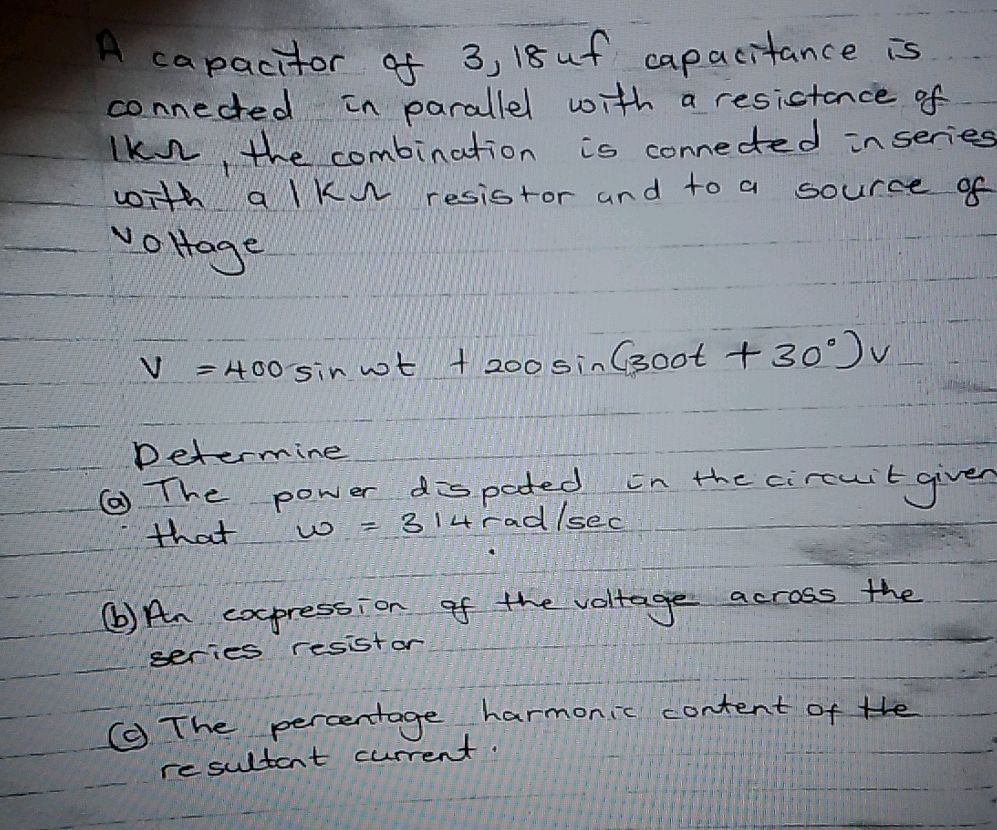 A capacitor of 3,18uf capacitance is
connected in parallel with a resistance of
1kΩ, the combination is connected in series
with a 1KΩ resistor and to a source of
voltage
V = 400 sin wt + 200 sin(300t + 30°)v
Determine
(a) The power dispated in the circuit given
that w = 314rad/sec
(b) An expression of the voltage across the
series resistor
(c) The percentage harmonic content of the
resultant current.